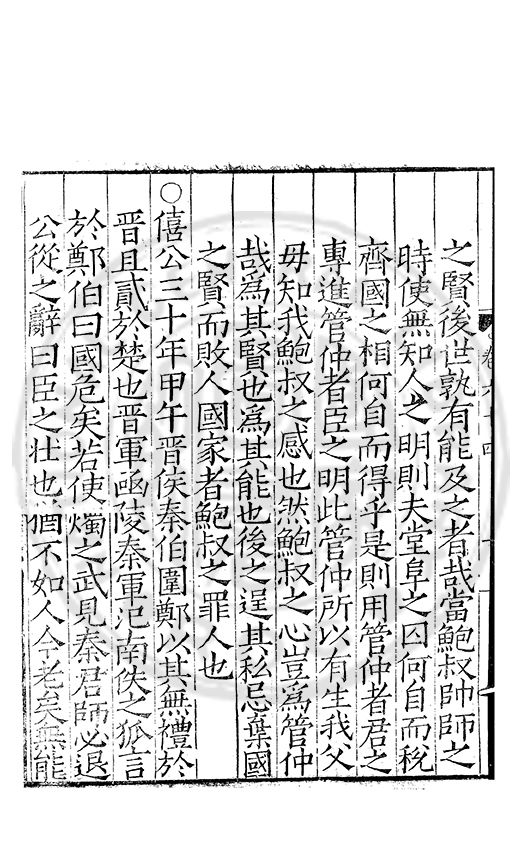 卷六十四
之賢後世孰有能及之者哉當鮑叔帥師之
時使無知人之明則夫堂阜之囚何自而稅
齊國之相何自而得乎是則用管仲者君之
專進管仲者臣之明此管仲所以有生我父
毋知我鮑叔之感也然鮑叔之心豈爲管仲
哉爲其賢也爲其能也後之逞其私忌棄國
之賢而敗人國家者鮑叔之罪人也
○僖公三十年甲午晋侯秦伯圍鄭以其無禮於
晋且貳於楚也晋軍凾陵秦軍氾南佚之狐言
於鄭伯曰國危矣若使燭之武見秦君師必退
公從之辭曰臣之壮也猶不如人今老矣無能